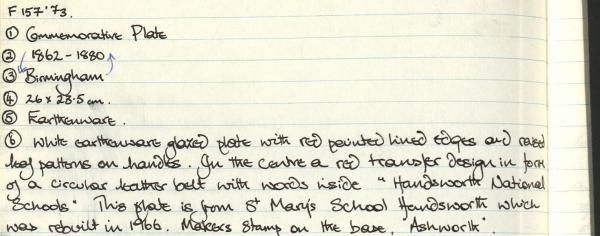 F 157'73.
① Commemorative Plate
② 1862 - 1880
③ Birmingham
④ 26 x 23.5 cm.
⑤ Earthenware.
⑥ White earthenware glazed plate with red painted lined edges and raised
leaf patterns on handles. In the centre a red transfer design in form
of a circular leather belt with words inside "Handsworth National
Schools" This plate is from St Mary's School Handsworth which
was rebuilt in 1966. Makers Stamp on the base, 'Ashworth'.